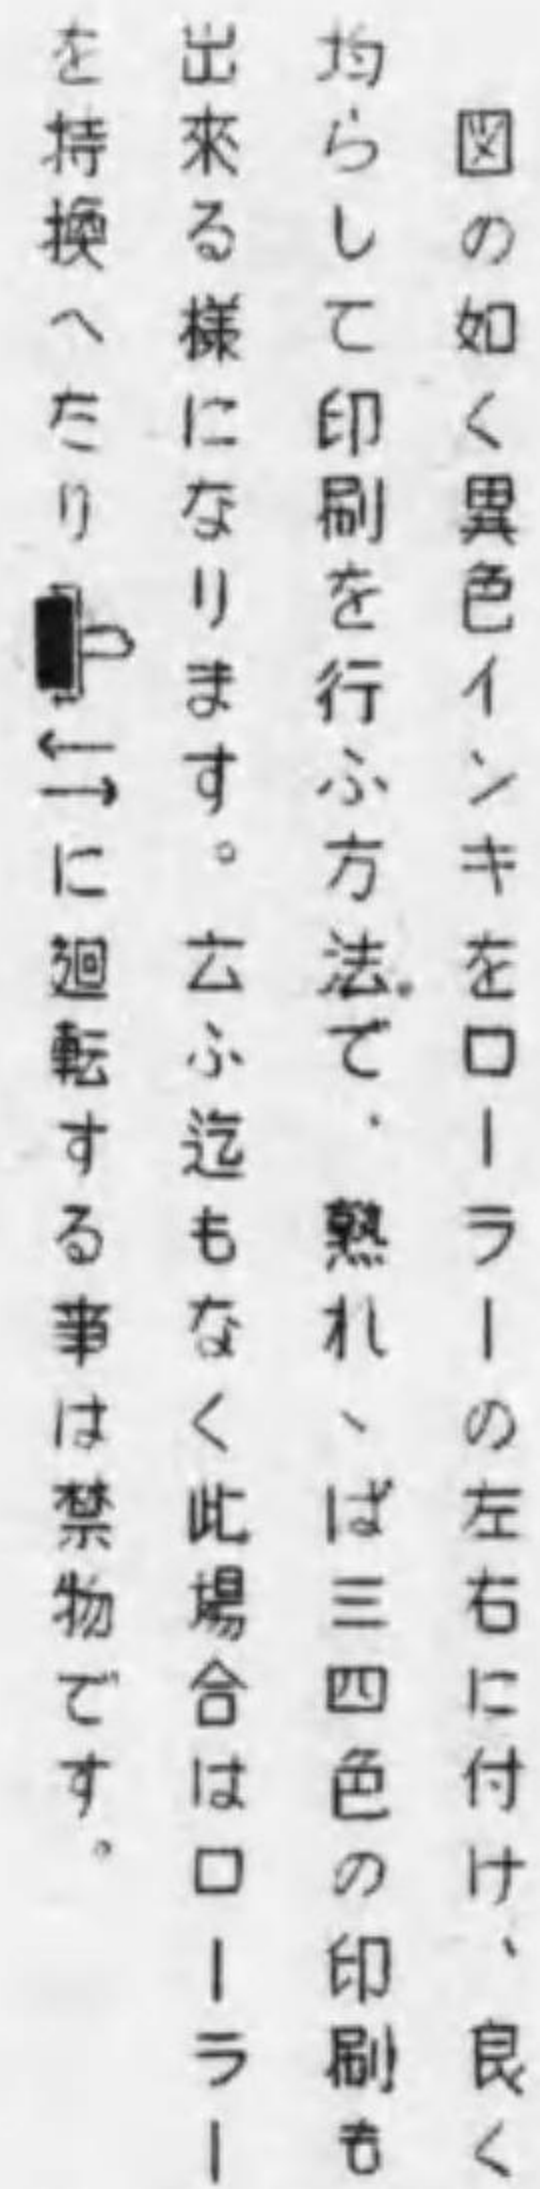 図の如く異色インキをローラーの左右に付け、良く
均らして印刷を行ふ方法で、熟れゝば三四色の印刷も
出來る様になります。云ふ迄もなく此場合はローラー
を持換へたり←→に廻転する事は禁物です。